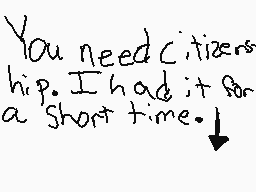 You need citizens
hip. I had it for
a short time.